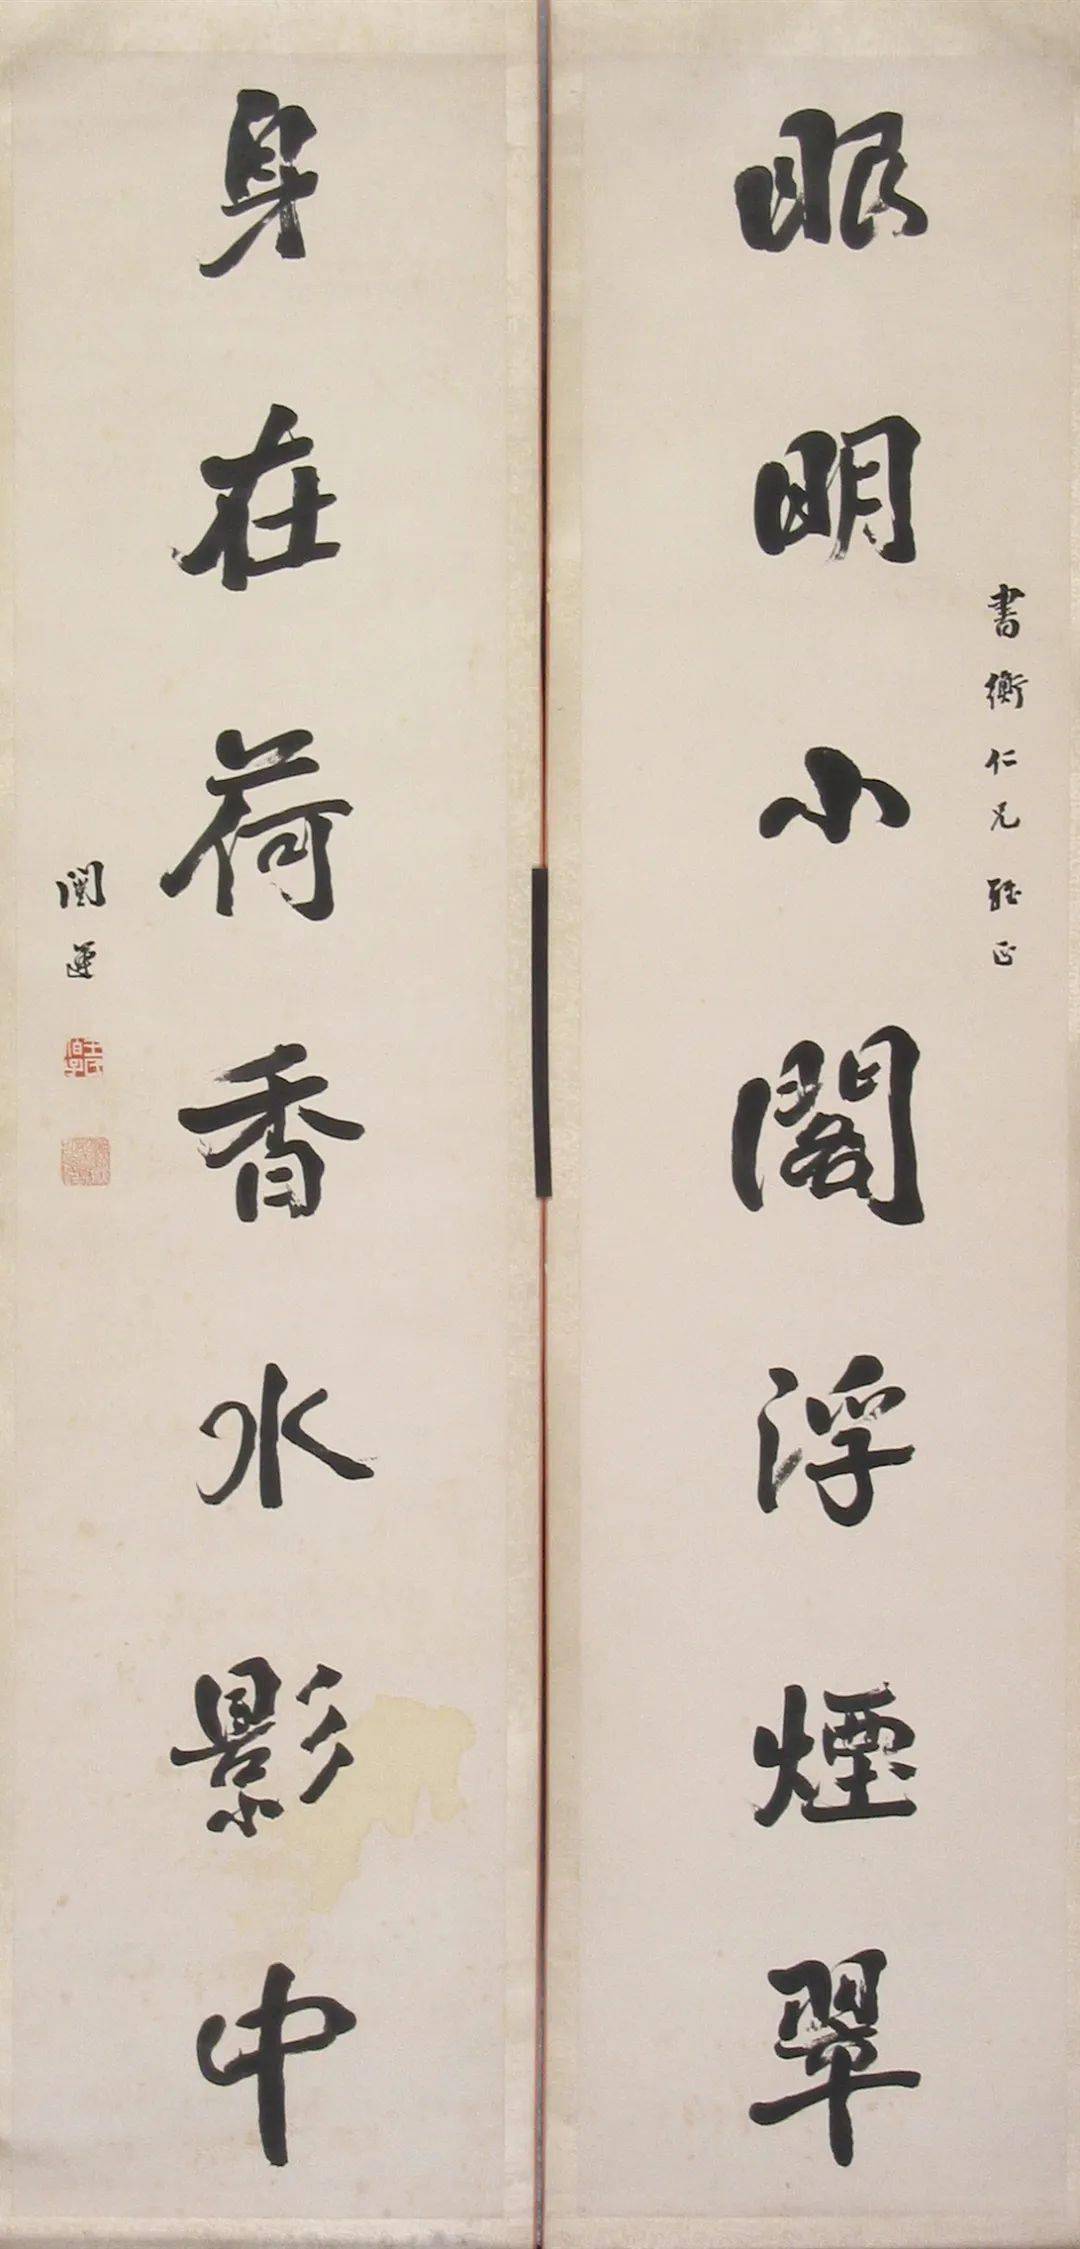 書衡仁兄雅正
眼明小閣浮煙翠
身在荷香水影中
闓運